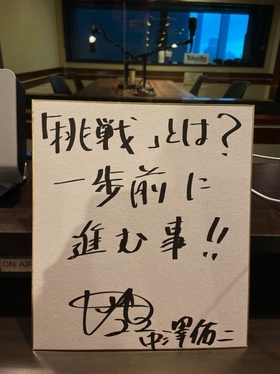 「挑戦」とは?
一歩前に
進む事!!
中澤佑二
ON AIR